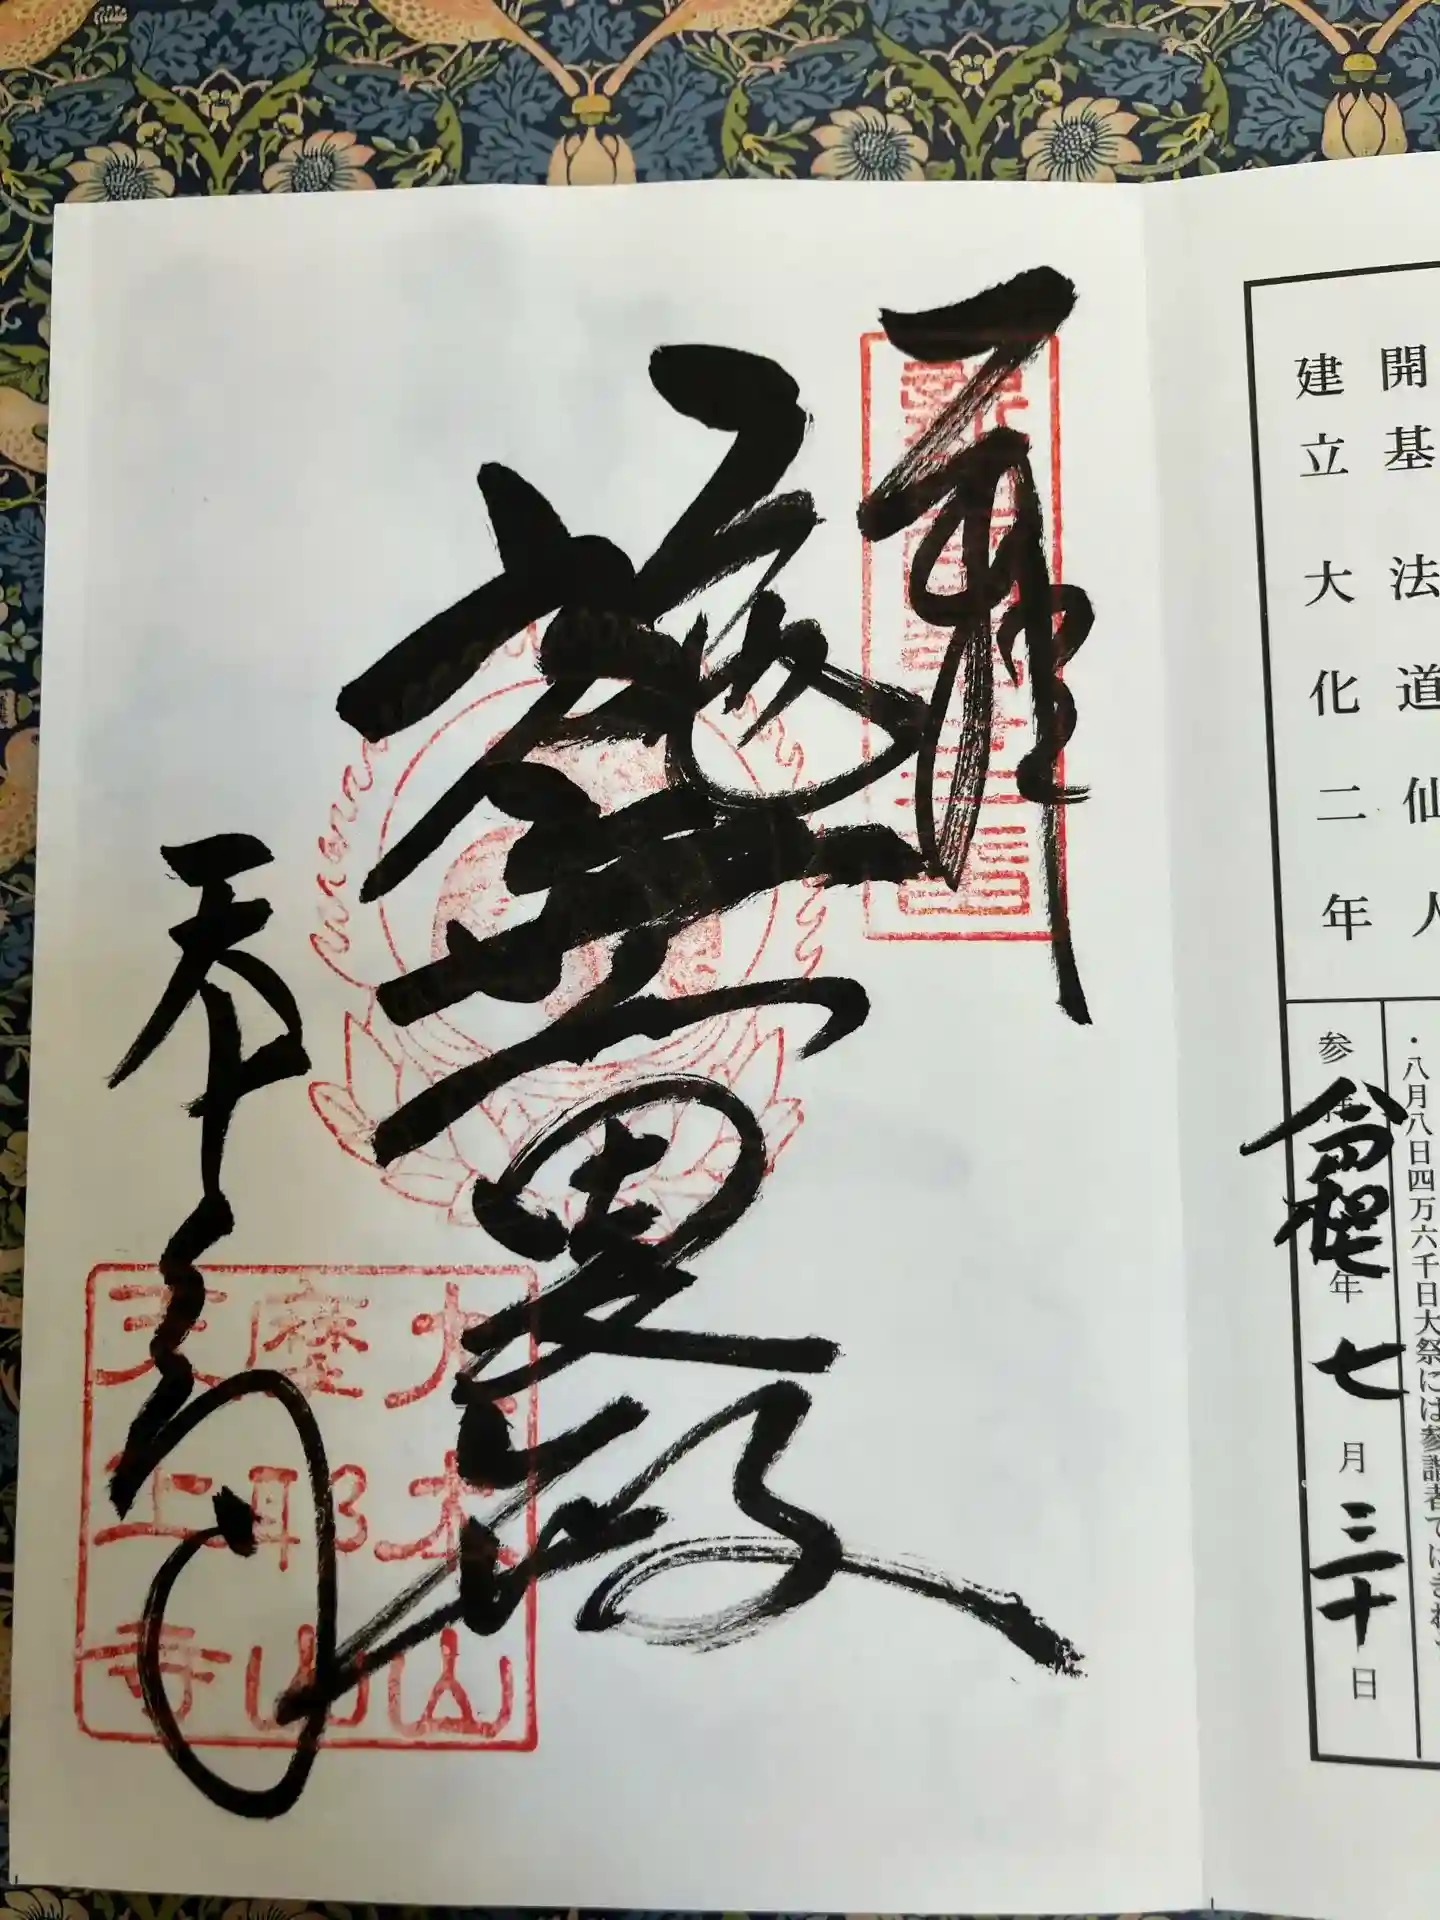 開基 法道仙人
建立 大化二年
・八月八日四万六千日大祭には参詣者で
参拝 令和七年七月三十日
奉拝
施無畏殿
天上寺
大本山
摩耶山
天上寺